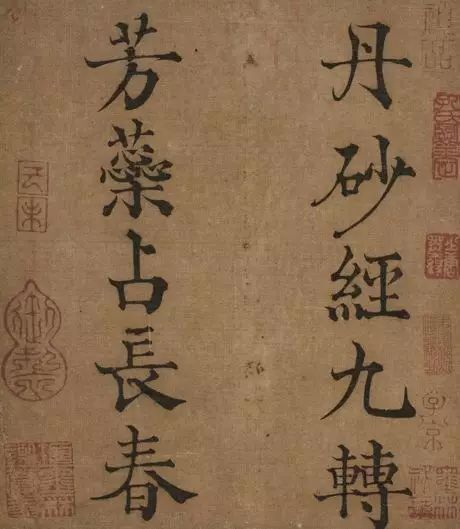 丹砂經九轉
芳蘂占長春